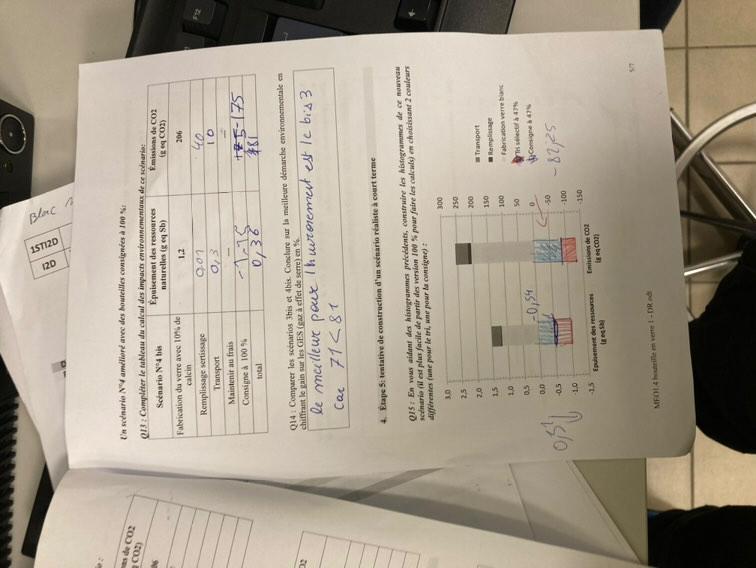 Un scénario N°4 amélioré avec des bouteilles consignées à 100 %:
Q13 : Compléter le tableau du calcul des impacts environnementaux de ce scénario:
Scénario N°4 bis
Epuisement des ressources naturelles (g eq Sb)
Emissions de CO2 (g eq CO2)
Fabrication du verre avec 10% de calcin
1,2
206
Remplissage sertissage
0,01
40
Transport
0,3
10
Maintenir au frais
Consigne à 100 %
-1.15
-175
total
0,36
81
Q14 : Comparer les scénarios 3bis et 4bis. Conclure sur la meilleure démarche environnementale en
chiffrant le gain sur les GES (gaz à effet de serre) en %.
le meilleur pour l'huvironement est le bis 3
car 71 < 81
4. Étape 5: tentative de construction d'un scénario réaliste à court terme
Q15 : En vous aidant des histogrammes précédents, construire les histogrammes de ce nouveau
scénario (il est plus facile de partir des version 100 % pour faire les calculs) en choisissant 2 couleurs
différentes (une pour le tri, une pour la consigne) :
3,0
2,5
2,0
1,5
1,0
0,5
0,0
-0,5
-1,0
-1,5
300
250
200
150
100
50
0
-50
-100
-150
Transport
Remplissage
Fabrication verre blanc
Tri sélectif à 47%
Consigne à 47%
-0,54
-82,25
0,51
Epuisement des ressources
(g eq Sb)
Emissions de CO2
(g eq CO2)
MEO1.4 bouteille en verre 1 - DR.odt
5/7
Bloc
1STI2D
I2D